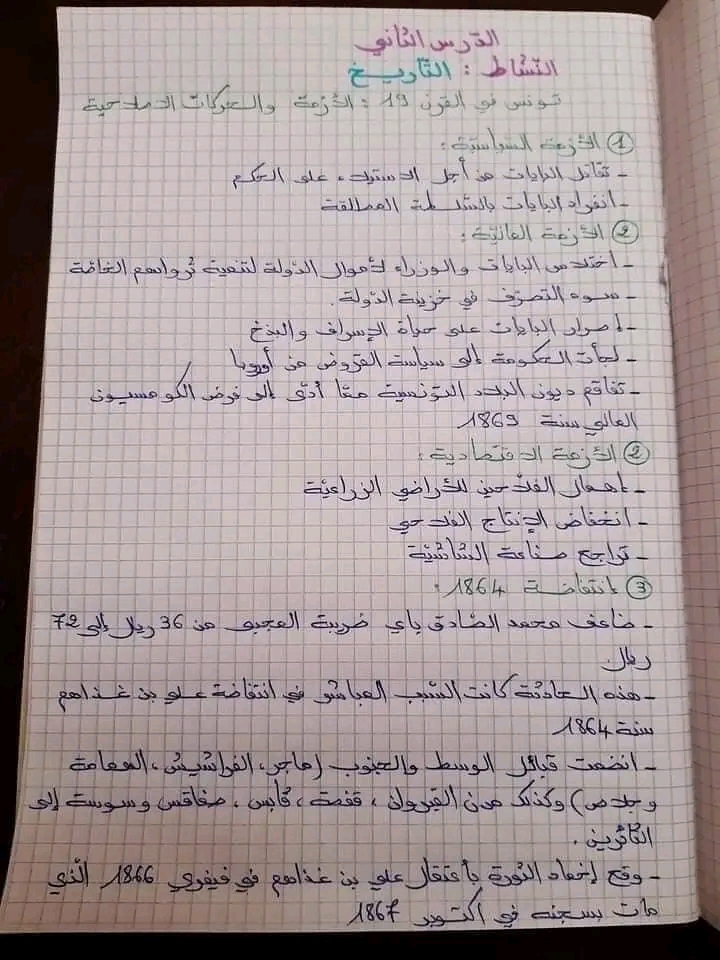 الدرس الثاني
النشاط : التاريخ
تونس في القرن 19 : الأزمة والحركات الاصلاحية
1 الأزمة السياسية :
- تقاتل البايات من أجل الاستيلاء على الحكم
- انفراد البايات بالسلطة المطلقة
2 الأزمة المالية :
- اختلاس البايات والوزراء لأموال الدولة لتنمية ثرواتهم الخاصة
- سوء التصرف في خزينة الدولة.
- إصرار البايات على حياة الإسراف والبذخ
- لجأت الحكومة إلى سياسة القروض من أوروبا
- تفاقم ديون البلاد التونسية ممّا أدّى إلى فرض الكومسيون
المالي سنة 1869
2 الأزمة الاقتصادية :
- إهمال الفلاحين للأراضي الزراعيّة
- انخفاض الإنتاج الفلاحي
- تراجع صناعة الشاشيّة
3 إنتفاضة 1864 :
- ضاعف محمد الصّادق باي ضريبة المجبى من 36 ريال إلى 72
ريال.
- هذه الحادثة كانت السّبب المباشر في انتفاضة علي بن غذاهم
سنة 1864
- انضمت قبائل الوسط والجنوب (ماجر، الفراشيش، الهمامة
وجلاص) وكذلك مدن القيروان، قفصة، قابس، صفاقس وسوسة إلى
الثّائرين.
- وقع إخماد الثورة بأعتقال علي بن غذاهم في فيفري 1866 الّذي
مات بسجنه في اكتوبر 1867